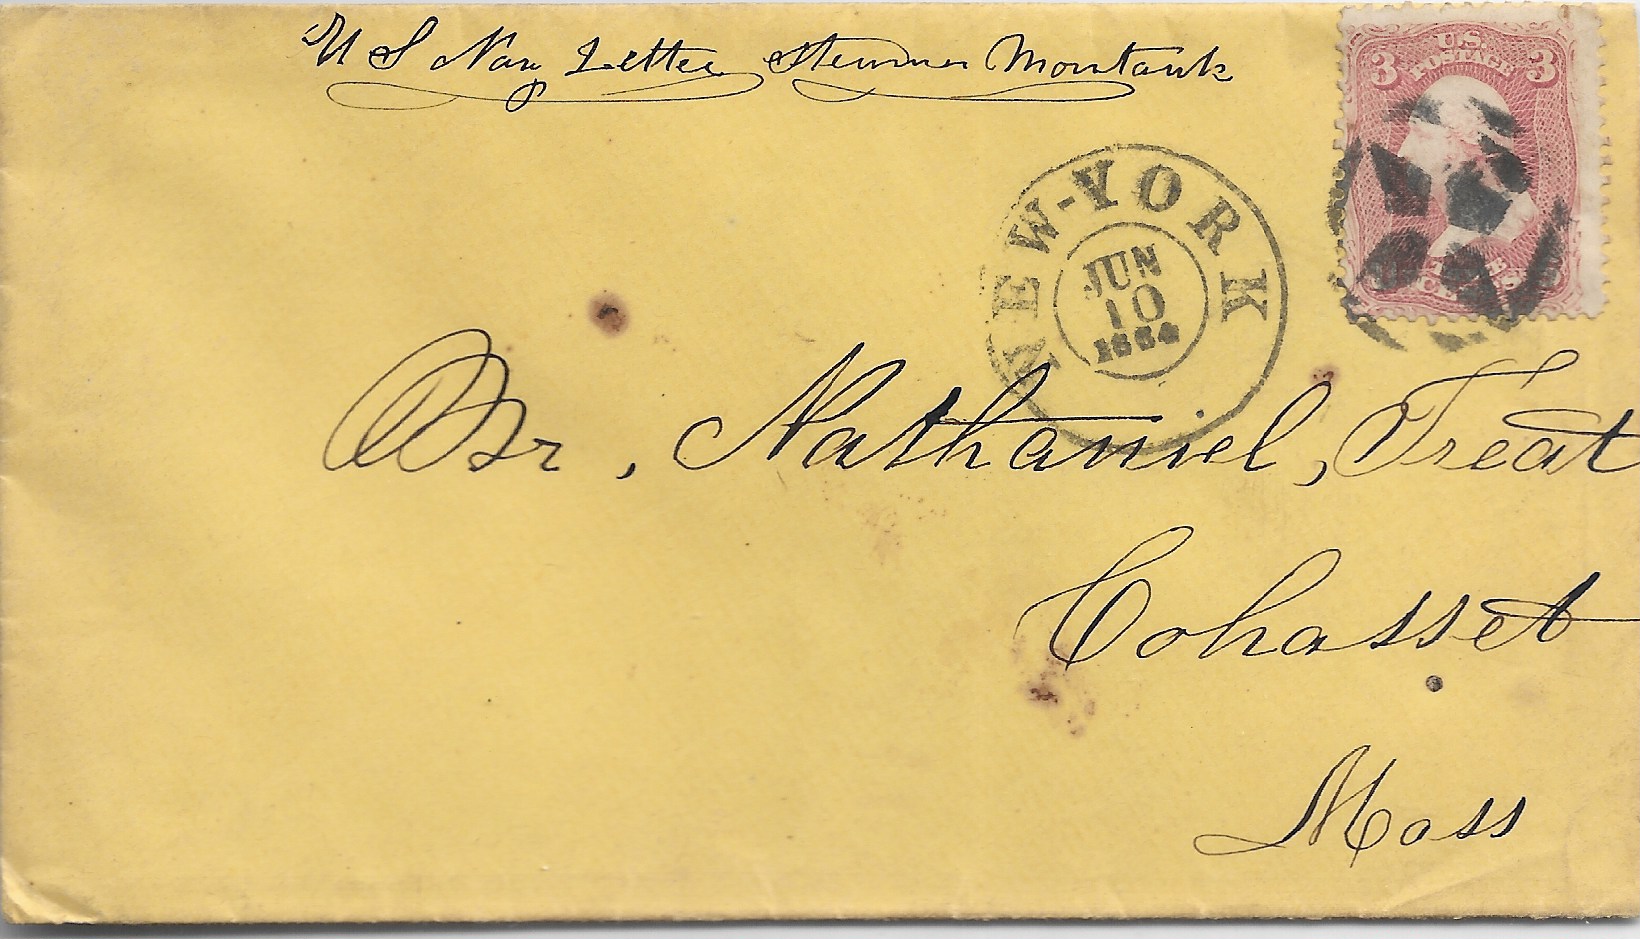 U S Nav Letter Steamer Montauk
U.S.
POSTAGE
3 3
NEW-YORK
JUN
10
1864
Mr, Nathaniel, Treat
Cohasset
Mass